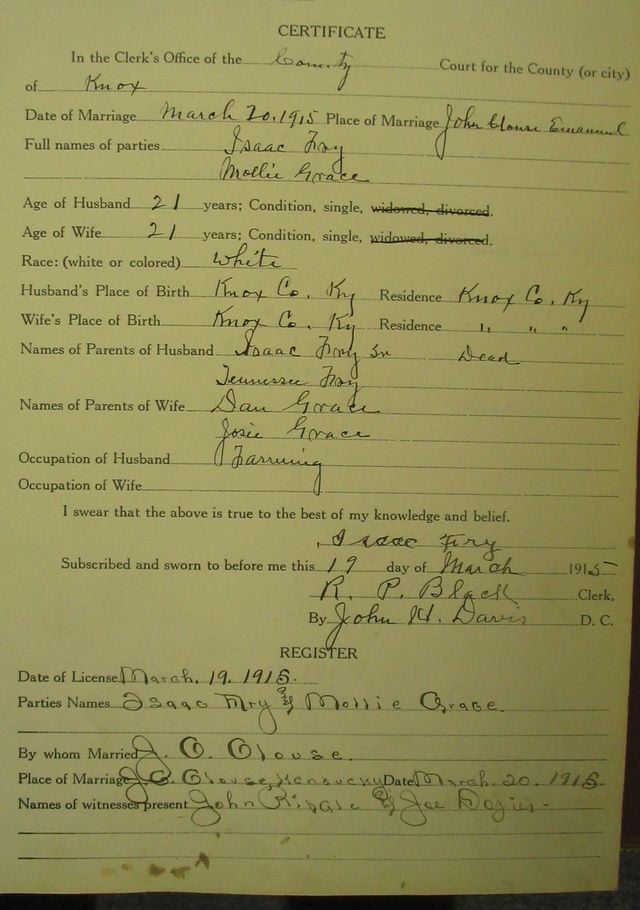 CERTIFICATE
In the Clerk's Office of the County Court for the County (or city)
of Knox
Date of Marriage March 20, 1915 Place of Marriage John Clouse Emanuel
Full names of parties Isaac Fry
Mollie Grace
Age of Husband 21 years; Condition, single, widowed, divorced.
Age of Wife 21 years; Condition, single, widowed, divorced.
Race: (white or colored) White
Husband's Place of Birth Knox Co, Ky Residence Knox Co, Ky
Wife's Place of Birth Knox Co, Ky Residence " " "
Names of Parents of Husband Isaac Fry Sr Dead
Tennessee Fry
Names of Parents of Wife Dan Grace
Josie Grace
Occupation of Husband Farming
Occupation of Wife
I swear that the above is true to the best of my knowledge and belief.
Isaac Fry
Subscribed and sworn to before me this 19 day of March 1915
R. P. Black Clerk,
By John H. Davis D. C.
REGISTER
Date of License March. 19. 1915.
Parties Names Isaac Fry & Mollie Grace.
By whom Married J. C. Clouse.
Place of Marriage J.C. Clouse, Date March. 20. 1915
Names of witnesses present John & Joe Dozier